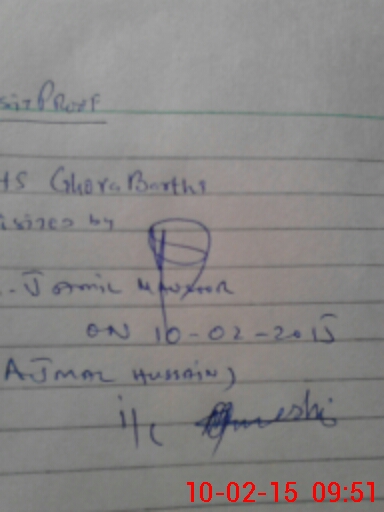 sit Proof
HS Ghora Barthi
isited by
. Jamil Manzoor
ON 10-02-2015
(AJMAL HUSSAIN)
i/c Qureshi
10-02-15 09:51